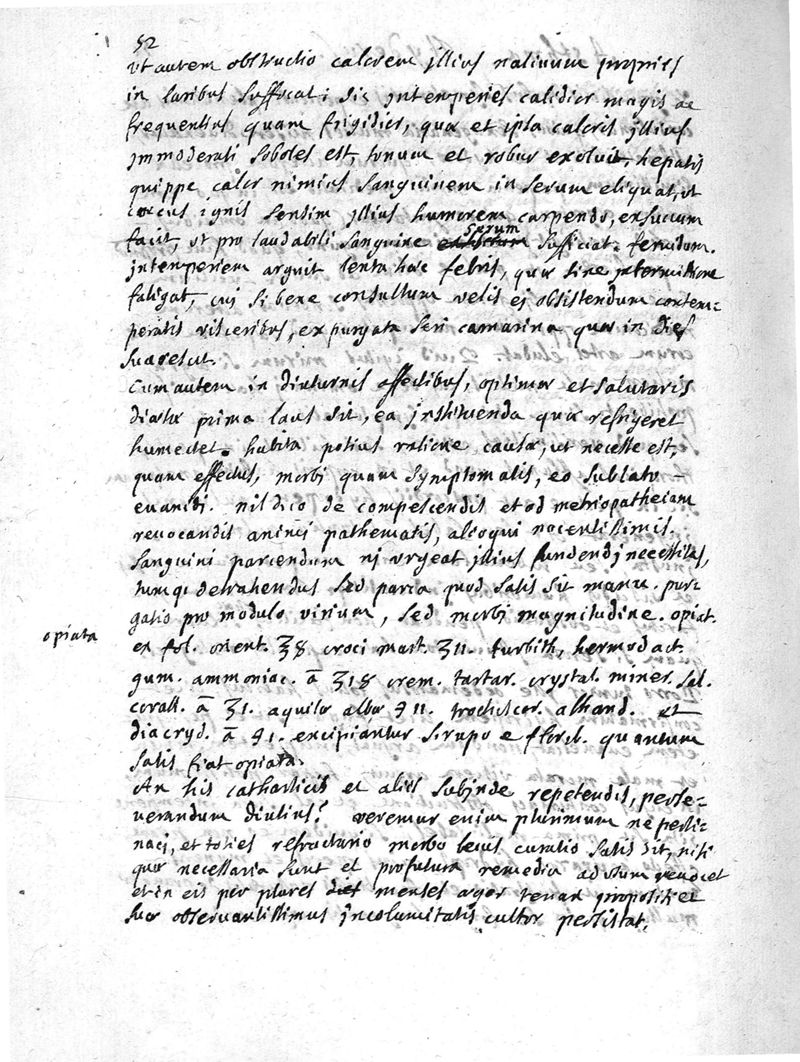 52
ut autem obstructio calorem illius nativum propriis
in laribus suffocat; sic intemperies calidior magis ac
frequentius quam frigidior, quæ et ipsa caloris illius
immoderati soboles est, tonum et robur exoluit, hepatis
quippe calor nimius sanguinem in serum eliquat, ut
cœcus ignis sensim illius humorem carpendo, exsuccum
facit, ut pro laudabili sanguine serum sufficiat. fervidam
intemperiem arguit lenta hæc febris, quæ sine intermissione
fatigat, cui si bene consultum velis ei obsistendum contem-
peratis visceribus, expurgata seri camarina quæ in dies
suarescit.
Cum autem in diuturnis affectibus, optimæ et salutaris
diætæ prima laus sit, ea instituenda quæ refrigeret
humectet. habita potius ratione causæ, ut necesse est,
quam effectus, morbi quam symptomatis, eo sublato
evanidi. nil dico de compescendis et ad metriopatheiam
revocandis animi pathematis, alioqui nocentissimis.
Sanguini parcendum ni urgeat illius fundendi necessitas,
tumq; detrahendus sed parca quod satis sit manu. pur-
gatio pro modulo virium, sed morbi magnitudine. opiat.
opiata
ex fol. orient. ʒß croci mart. ʒII. turbith, hermodact.
gum. ammoniac. ā ʒIß crem. tartar. crystal. miner. sal.
corall. ā ʒI. aquilæ albæ ℈II. trochiscor. alhand. et
diacryd. ā ℈I. excipiantur sirupo e florib. quantum
satis fiat opiata.
An his catharticis et aliis subinde repetendis, perse-
verandum diutius? veremur enim plurimum ne perti-
naci, et toties refractario morbo levis curatio satis sit, nisi
quæ necessaria sunt et profutura remedia ad usum revocet
et in eis per plures menses æger tenax propositi et
suæ observantissimus incolumitatis cultor persistat.